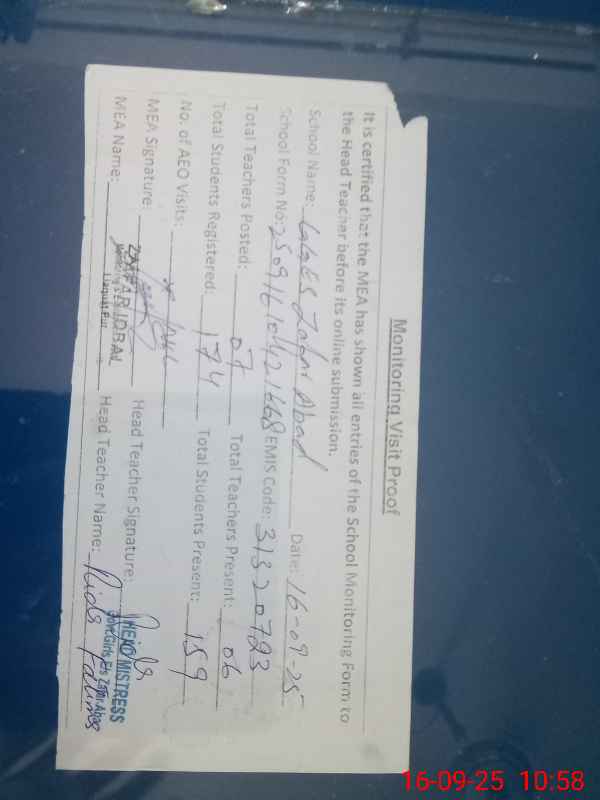 Monitoring Visit Proof
It is certified that the MEA has shown all entries of the School Monitoring Form to
the Head Teacher before its online submission.
School Name: GGES Zafar Abad Date: 16-09-25
School Form No: EMIS Code: 31320723
Total Teachers Posted: 07 Total Teachers Present: 06
Total Students Registered: 174 Total Students Present: 159
No. of AEO Visits:
MEA Signature: Head Teacher Signature: Rida
MEA Name: ZAFAR IQBAL Head Teacher Name: Rida Fatima
Liaquat Pur
HEAD MISTRESS
Govt. Girls E/s Zafar Abad
16-09-25 10:58